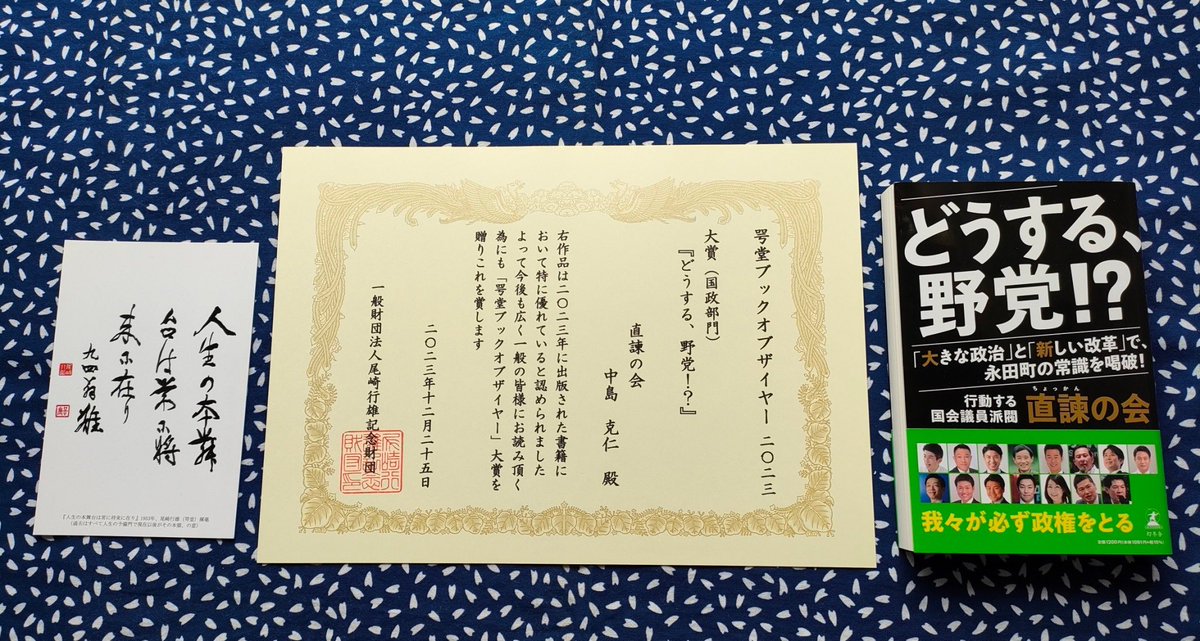 人生の本舞
台は常に将
来に在り
九四翁 雄
『人生の本舞台は常に将来に在り』
咢堂ブックオブザイヤー 二〇二三
大賞(国政部門)
『どうする、野党!?』
直諫の会
中島 克仁 殿
右作品は二〇二三年に出版された書籍に
おいて特に優れていると認められました
よって今後も広く一般の皆様にお読み頂く
為にも「咢堂ブックオブザイヤー」大賞を
贈りこれを賞します
二〇二三年十二月二十五日
一般財団法人尾崎行雄記念財団
どうする、
野党!?
「大きな政治」と「新しい改革」で、
永田町の常識を喝破!
行動する
国会議員派閥
ちょっかん
直諫の会
我々が必ず政権をとる
幻冬舎